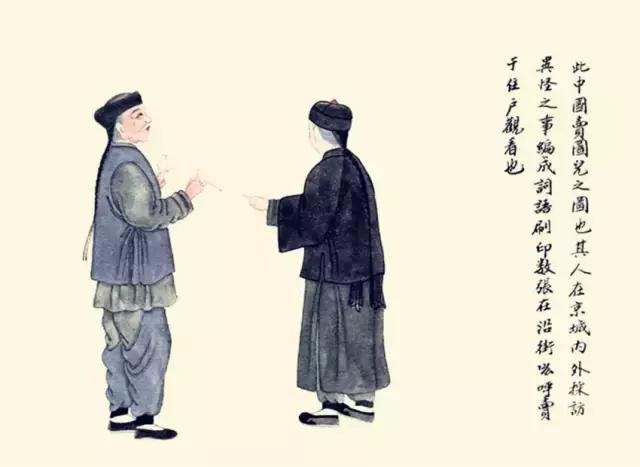 此中國賣圖兒之圖也其人在京城內外採訪
異怪之事編成詞語刷印數張在沿街吆呼賣
于住戶觀看也